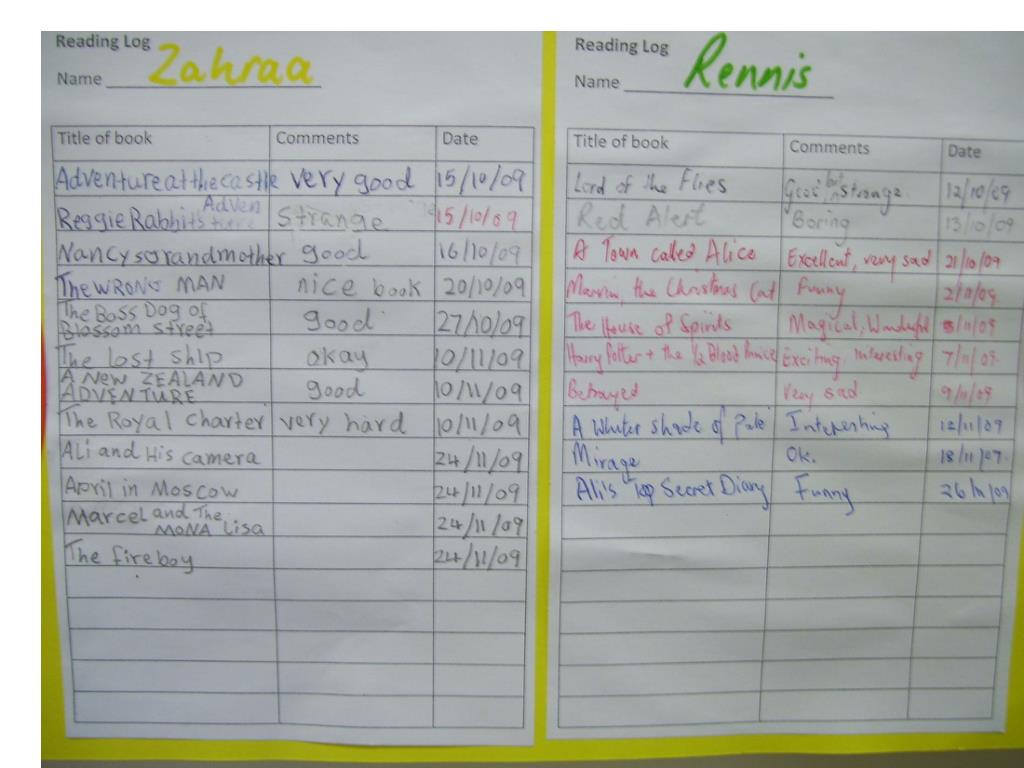 Reading Log
Name Zahraa
Title of book Comments Date
Adventure at the castle very good 15/10/09
Reggie Rabbits Adventure strange 15/10/09
Nancys grandmother good 16/10/09
The WRONG MAN nice book 20/10/09
The Boss Dog of
Blossom Street good 27/10/09
The lost ship okay 10/11/09
A NEW ZEALAND
ADVENTURE good 10/11/09
The Royal Charter very hard 10/11/09
Ali and His camera 24/11/09
April in Moscow 24/11/09
Marcel and The
MONA Lisa 24/11/09
The fireboy 24/11/09
Reading Log
Name Rennis
Title of book Comments Date
Lord of the Flies Good but Strange 12/10/09
Red Alert Boring 13/10/09
A Town called Alice Excellent, very sad 21/10/09
the Christmas Cat Funny 2/11/09
The House of Spirits Magical, Wonderful 5/11/09
Harry Potter + the ½ Blood Prince Exciting, Interesting 7/11/09
Betrayed Very sad 9/11/09
A Whiter shade of Pale Interesting 12/11/09
Mirage Ok. 18/11/09.
Ali's Top Secret Diary Funny 26/11/09